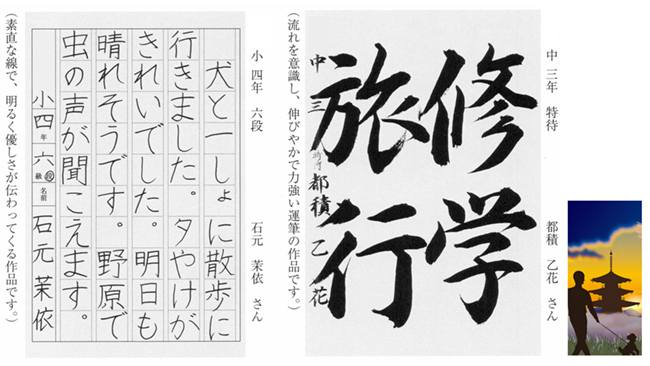 中 三年 特待
都積 乙花 さん
修学
旅行
中三
都積乙花
（流れを意識し、伸びやかで力強い運筆の作品です。）
小 四年 六段
石元 茉依 さん
犬と一しょに散歩に
行きました。夕やけが
きれいでした。明日も
晴れそうです。野原で
虫の声が聞こえます。
小四年六段級名前石元茉依
（素直な線で、明るく優しさが伝わってくる作品です。）